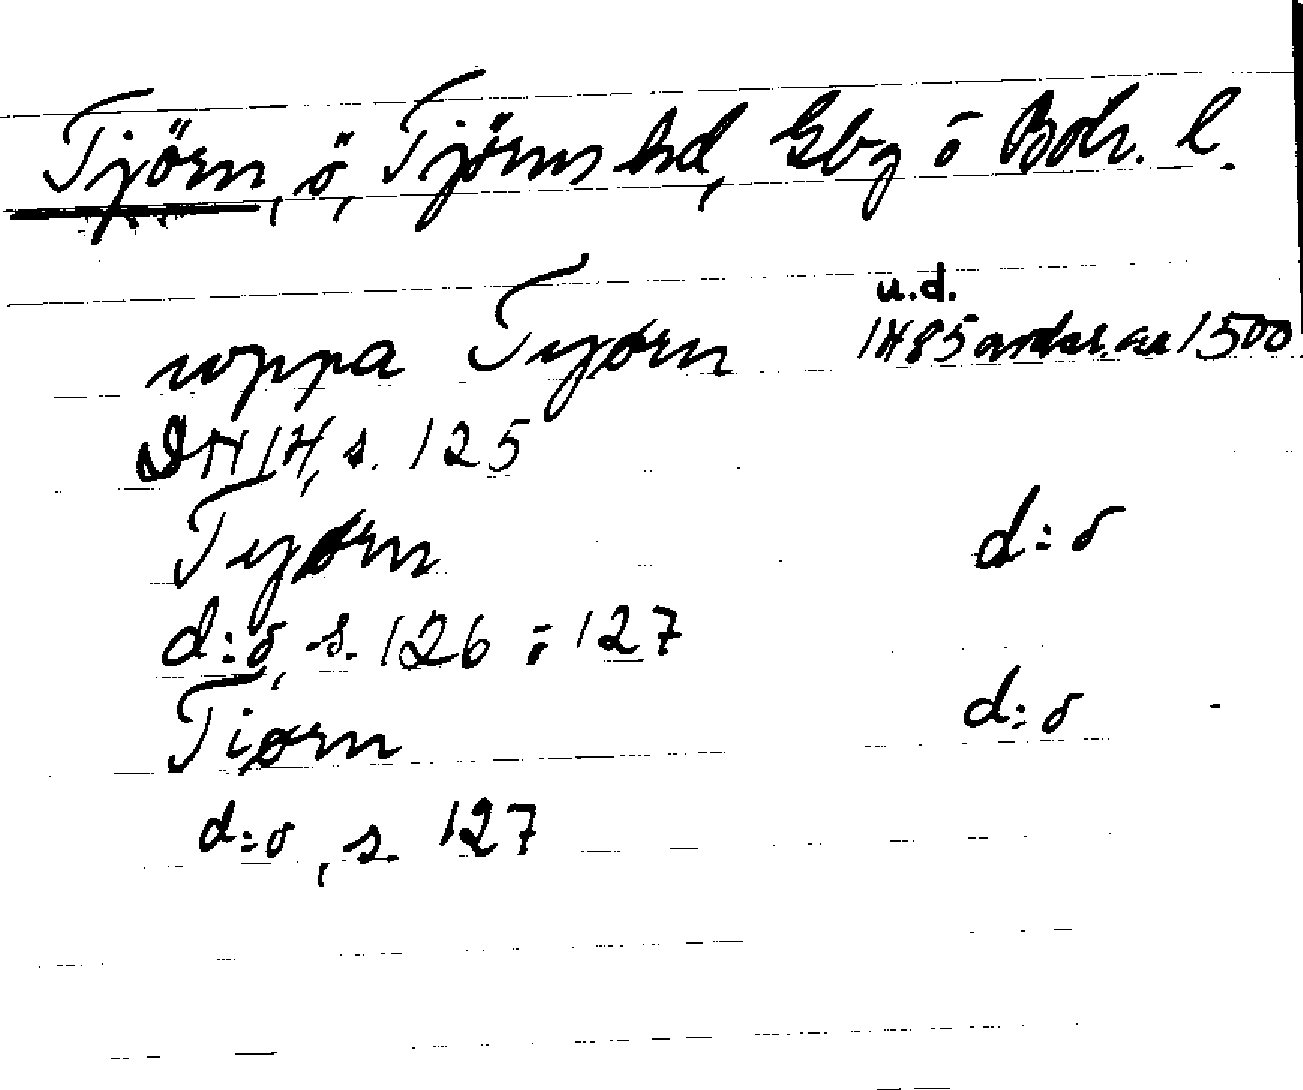 Tjörn, ö, Tjörns hd, Gbg o Boh. l.
u.d.
uppa Tyørn 1485 avskr. av 1500
DN 14, s. 125
Tyørn d:o
d:o, s. 126 o 127
Tiørn d:o
d:o, s. 127